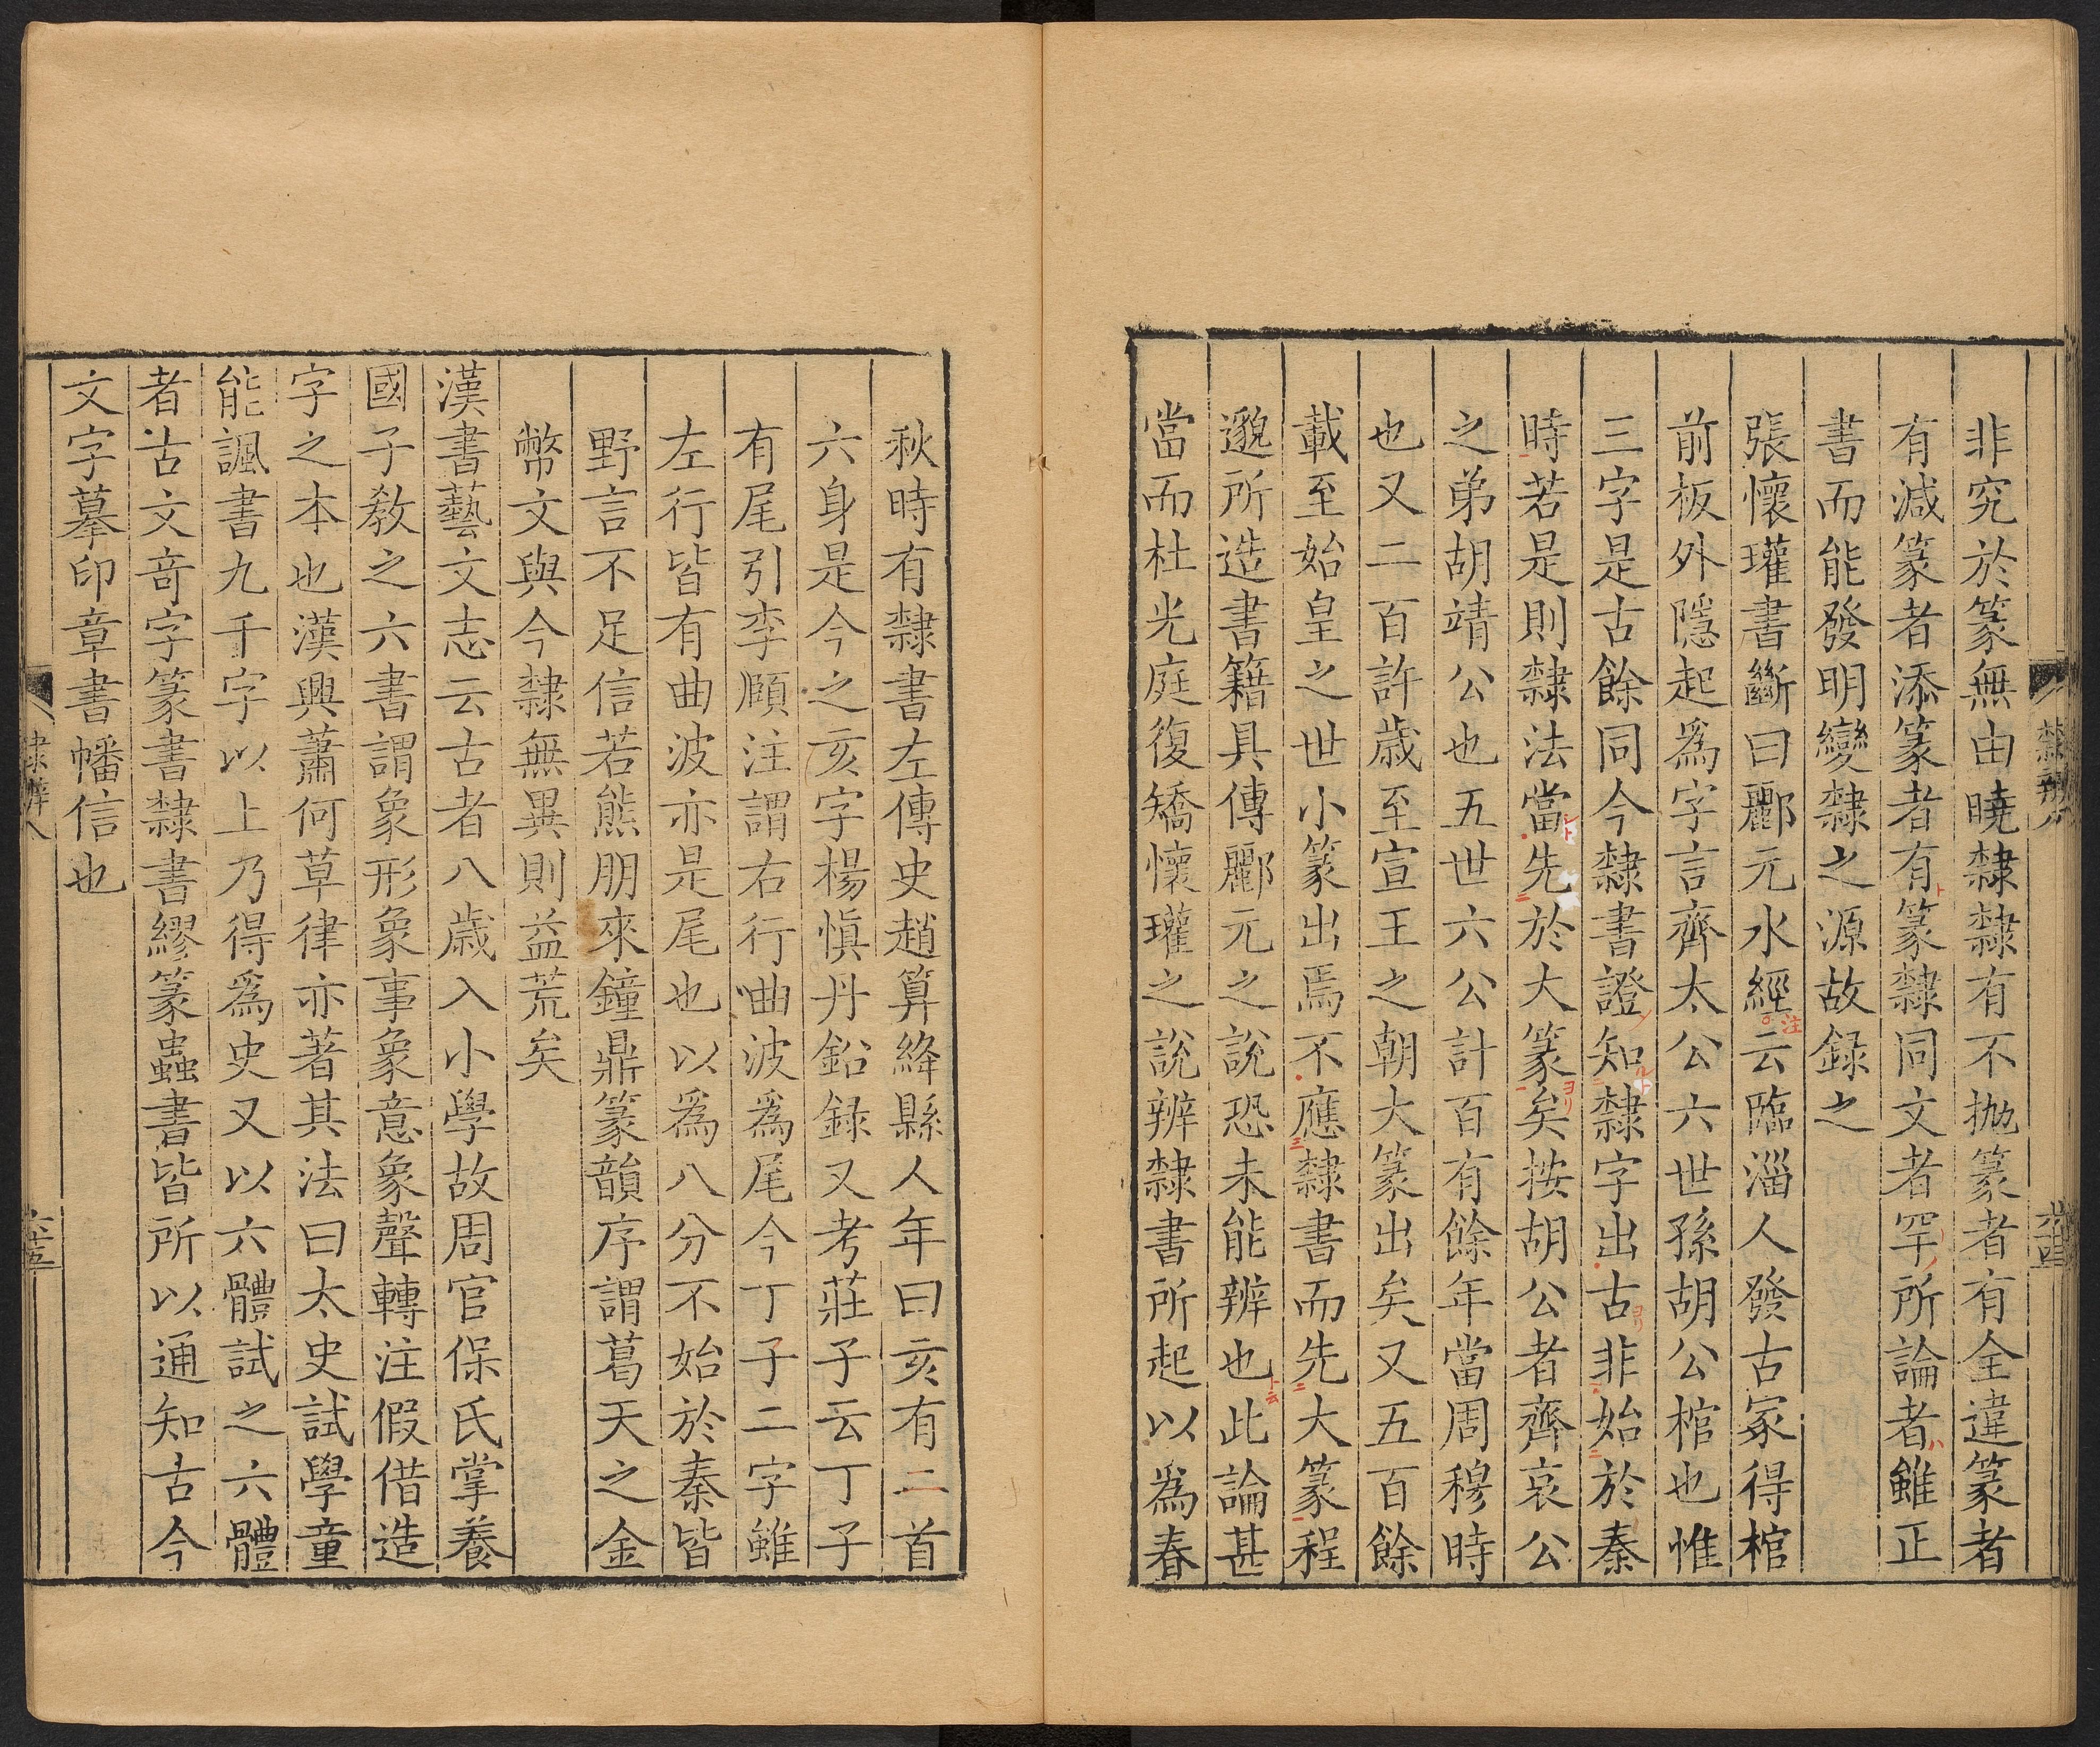 非究於篆無由曉隸隸有不拋篆者有全違篆者
有減篆者添篆者有篆隸同文者罕所論者雖正
書而能發明變隸之源故録之
張懷瓘書斷曰酈元水經云臨淄人發古冢得棺
前板外隱起爲字言齊太公六世孫胡公棺也惟
三字是古餘同今隸書證知隸字出古非始於秦
時若是則隸法當先於大篆矣按胡公者齊哀公
之弟胡靖公也五世六公計百有餘年當周穆時
也又二百許歲至宣王之朝大篆出矣又五百餘
載至始皇之世小篆出焉不應隸書而先大篆程
邈所造書籍具傳酈元之説恐未能辨也此論甚
當而杜光庭復矯懷瓘之説辨隸書所起以爲春
秋時有隸書左傳史趙算絳縣人年曰亥有二首
六身是今之亥字楊愼丹鉛録又考莊子云丁子
有尾引李頤注謂右行曲波爲尾今丁子二字雖
左行皆有曲波亦是尾也以爲八分不始於秦皆
野言不足信若熊朋來鐘鼎篆韻序謂葛天之金
幣文與今隸無異則益荒矣
漢書藝文志云古者八歲入小學故周官保氏掌養
國子教之六書謂象形象事象意象聲轉注假借造
字之本也漢興蕭何草律亦著其法曰太史試學童
能諷書九千字以上乃得爲史又以六體試之六體
者古文奇字篆書隸書繆篆蟲書皆所以通知古今
文字摹印章書幡信也
隸辨八